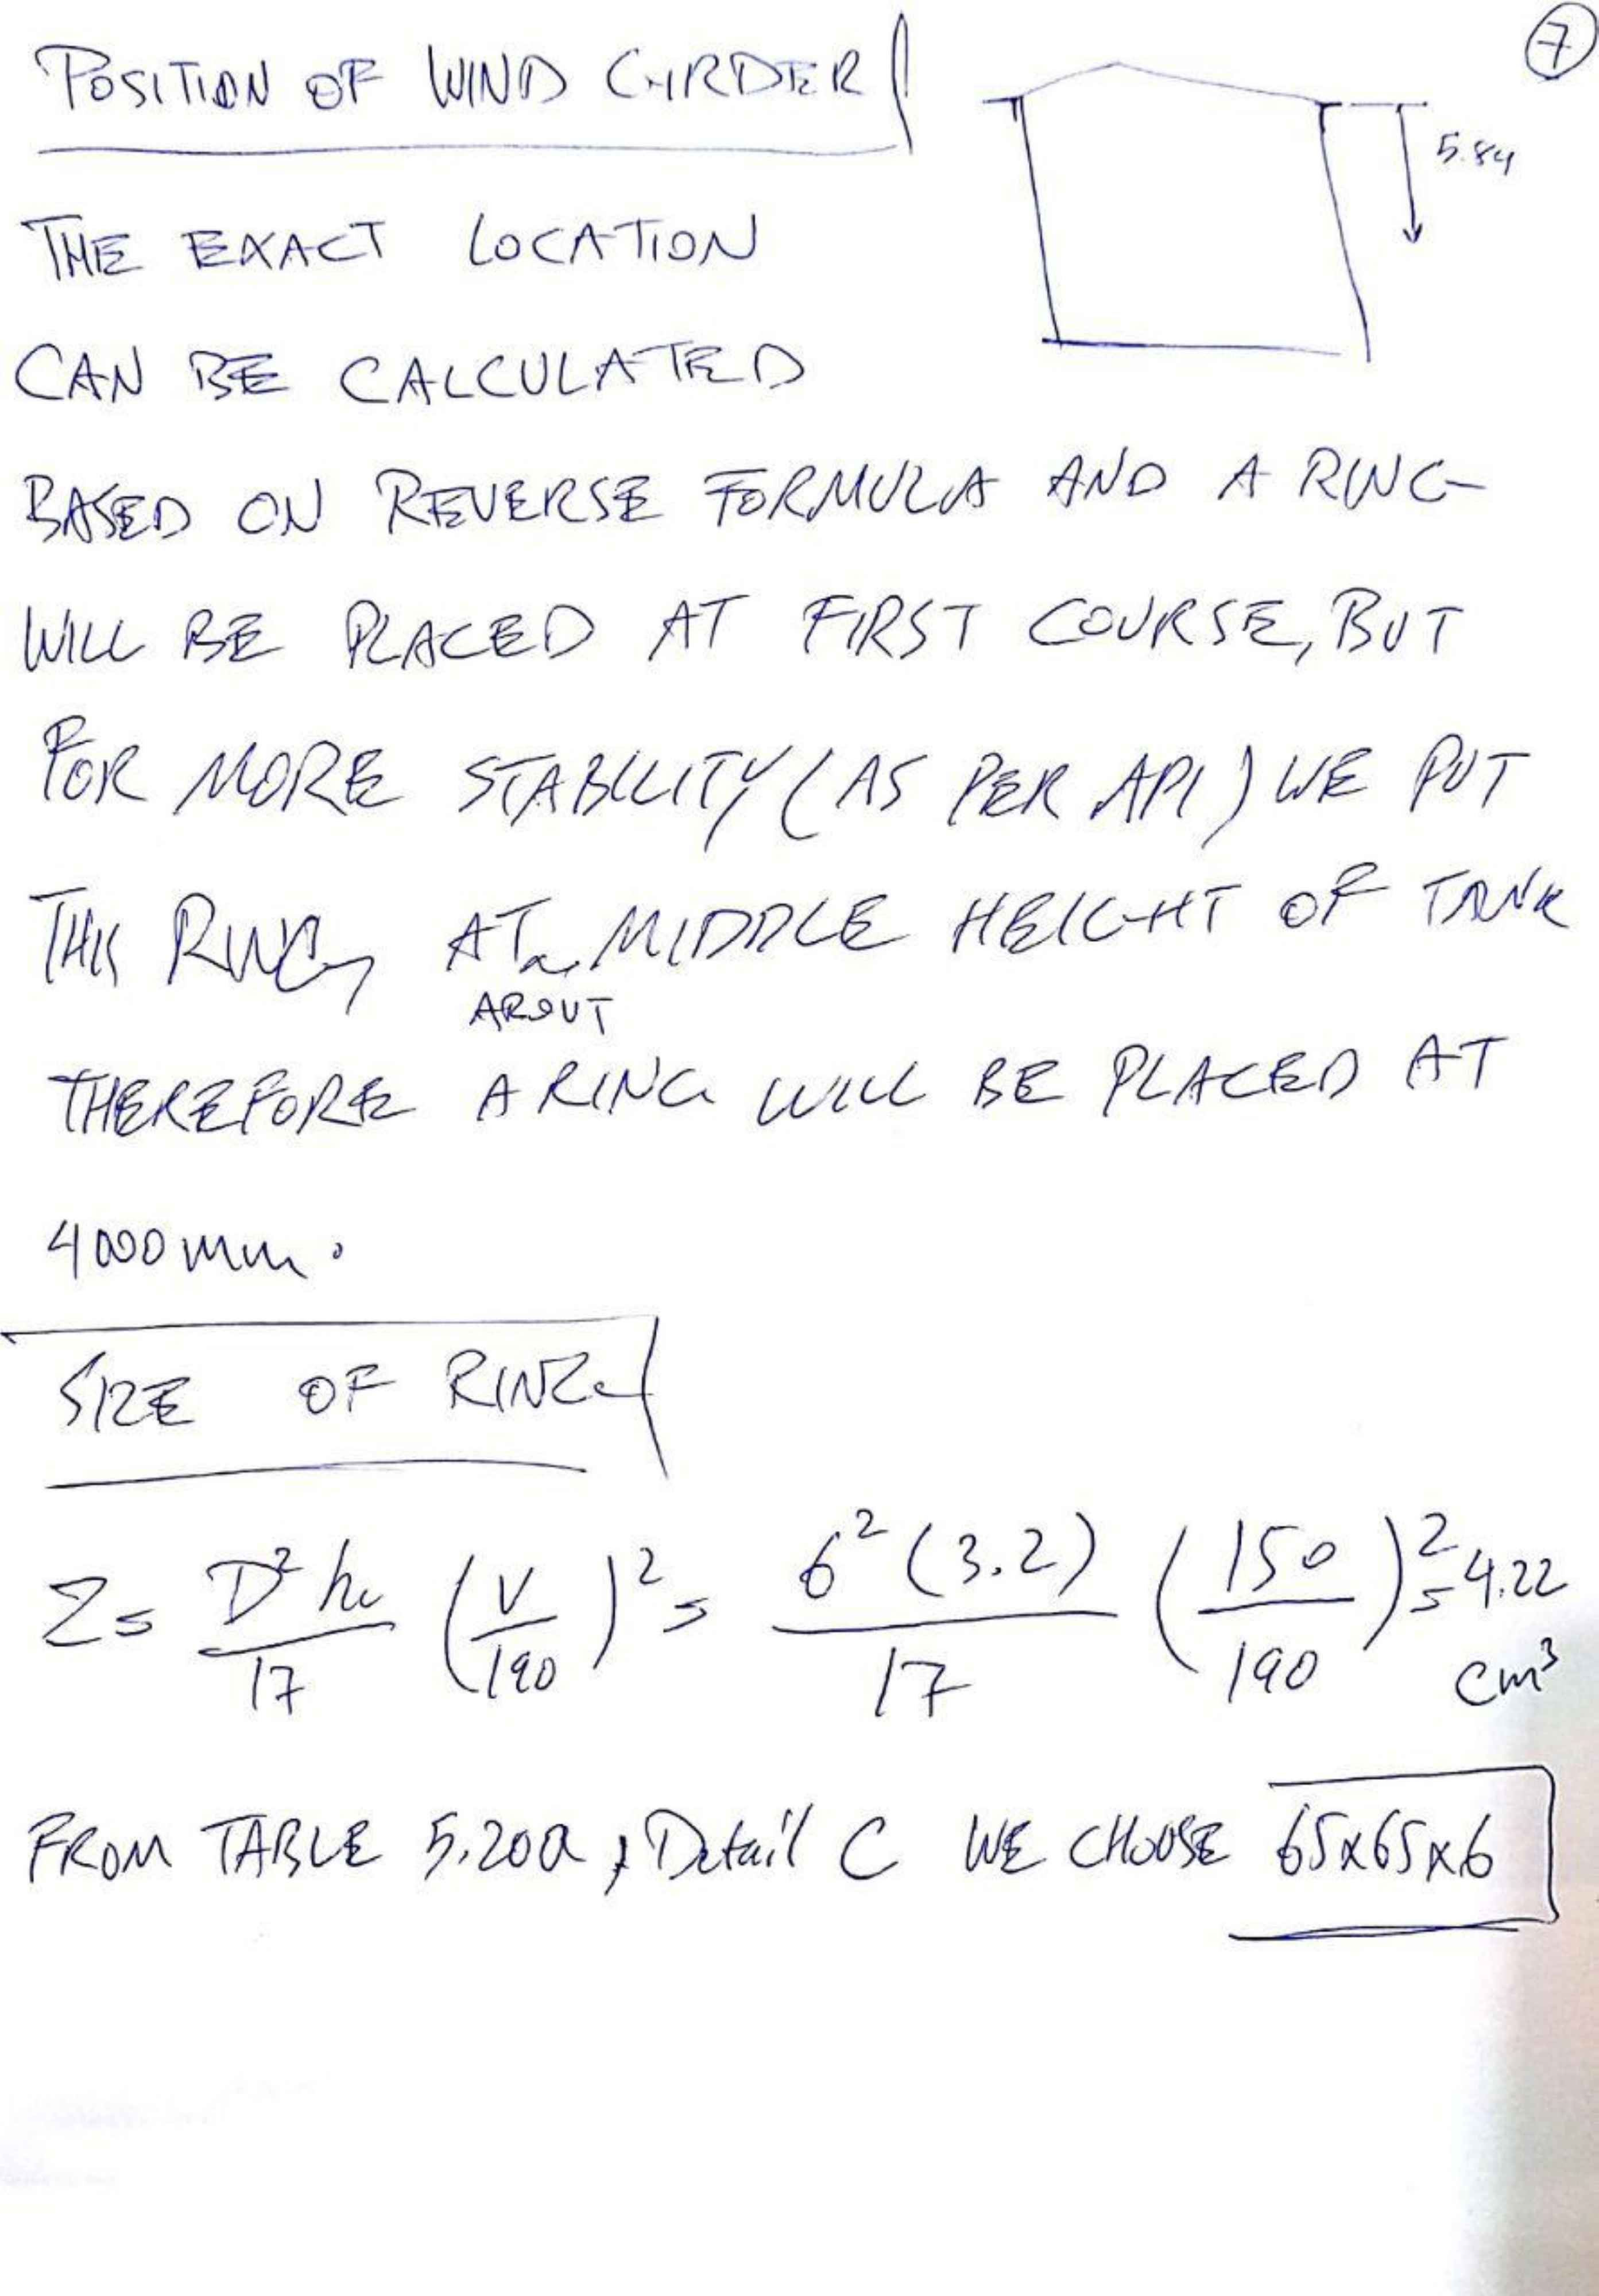 7
POSITION OF WIND GIRDER
5.84
THE EXACT LOCATION
CAN BE CALCULATED
BASED ON REVERSE FORMULA AND A RING
WILL BE PLACED AT FIRST COURSE, BUT
FOR MORE STABILITY (AS PER API) WE PUT
THIS RING AT MIDDLE HEIGHT OF TANK
ABOUT
THEREFORE A RING WILL BE PLACED AT
4000 mm.
SIZE OF RING
Z = D² h₁ / 17 (V / 190)² = 6² (3.2) / 17 (150 / 190)² = 4.22 cm³
FROM TABLE 5.20a, Detail C WE CHOOSE 65x65x6